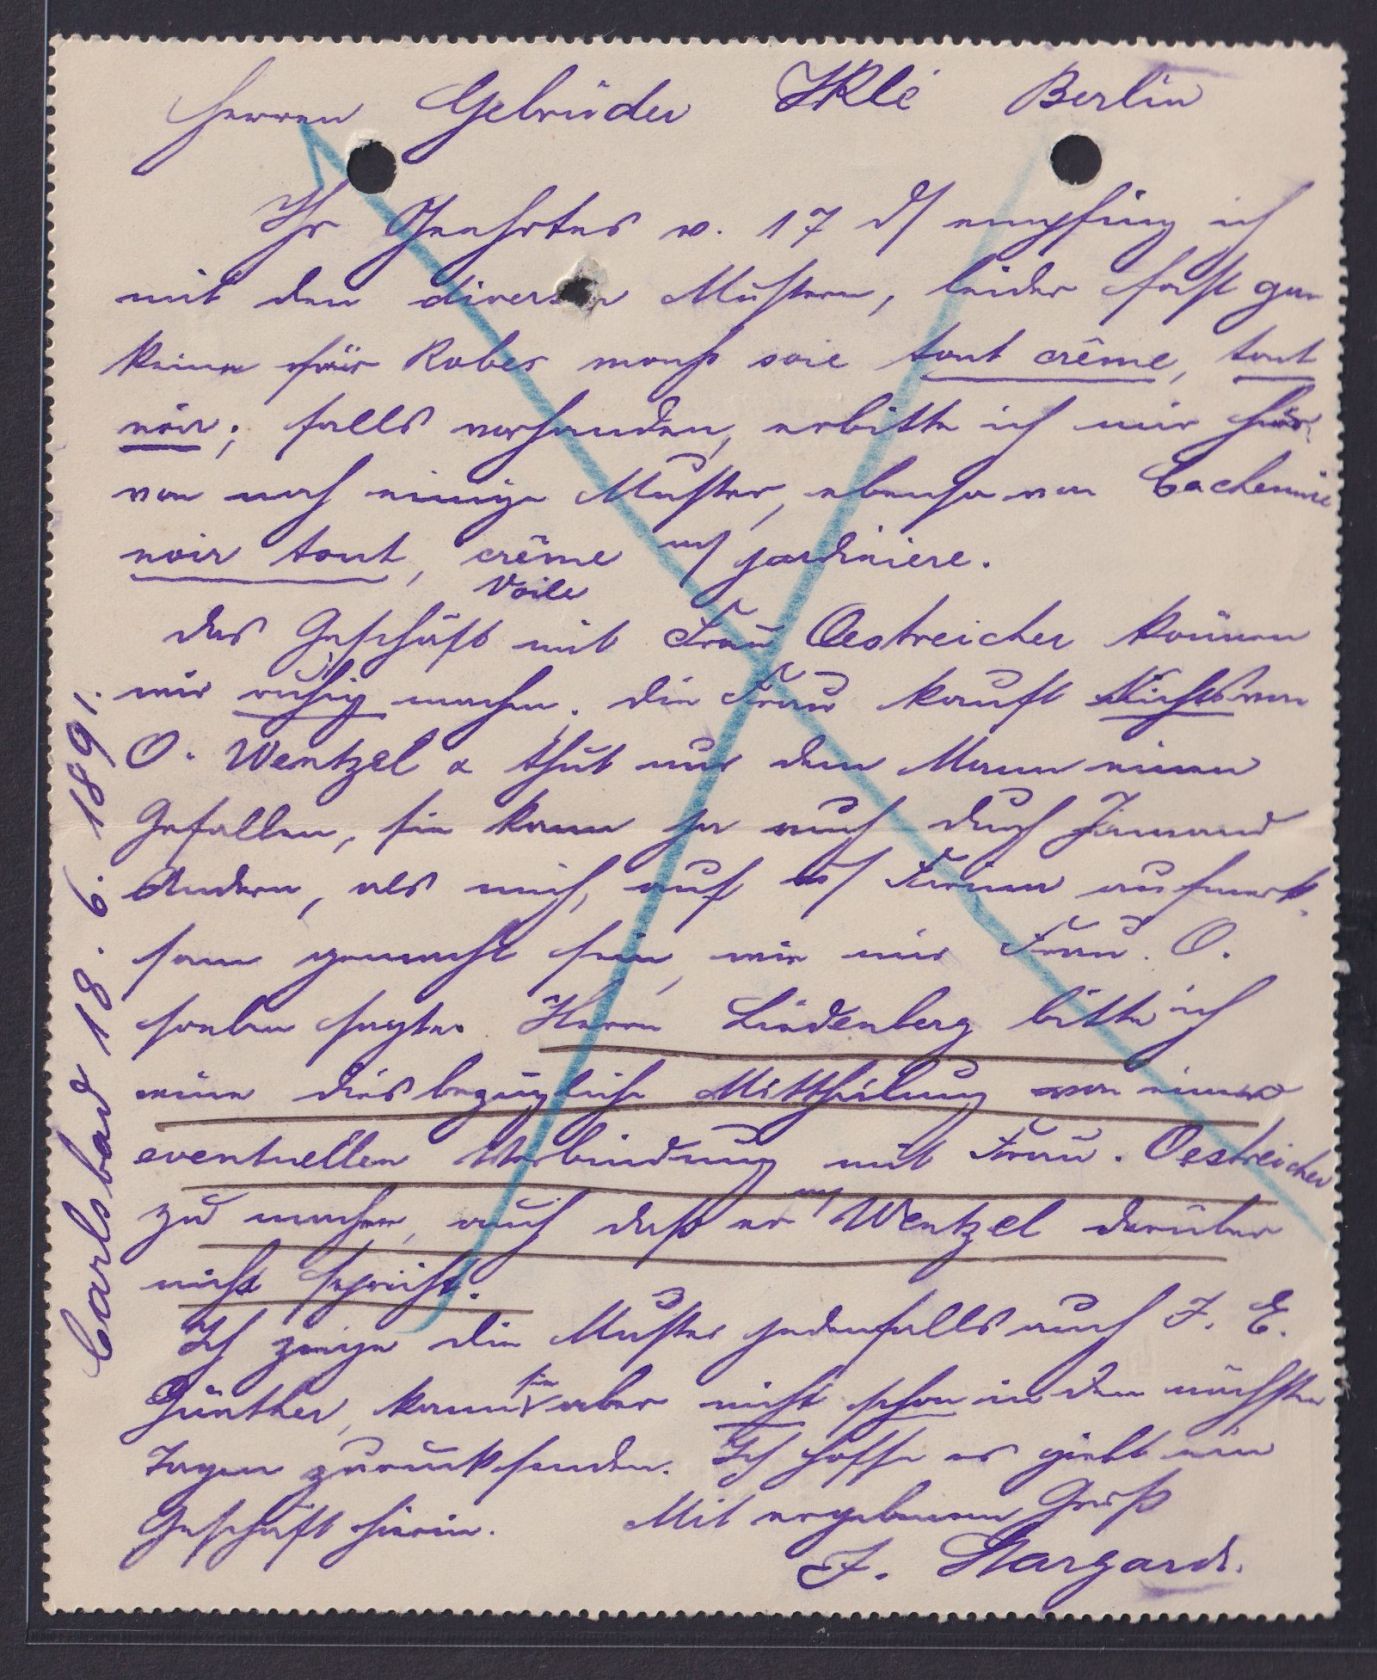 Herren Gebrüder Iklé Berlin
Ihr Geehrtes v. 17 d/ empfing ich
mit den diversen Mustern, leider fast gar
keine für Robes mouss soie tout crême, tout
noir; falls vorhanden, erbitte ich mir hier
von noch einige Muster, ebenso von Cachemire
noir tout, crême m/ jardiniere.
Voile
Das Geschäft mit Frau Oestreicher können
wir ruhig machen. Die Frau kauft Nichts von
O. Wentzel & thut nur dem Mann einen
Gefallen, sie kann ja auch durch Jemand
Andern, als mich, auf d/ Firma aufmerk-
sam gemacht sein, wie mir Frau O.
soeben sagte. Herrn Lindenberg bitte ich
eine diesbezügliche Mittheilung von einer
eventuellen Verbindung mit Frau Oestreicher
zu machen, auch daß er m/ Wentzel darüber
nicht spricht.
Ich zeige die Muster jedenfalls auch J. E.
Günther, kann sie aber nicht schon in den nächsten
Tagen zurücksenden. Ich hoffe es giebt ein
Geschäft hierin. Mit ergebenem Gruß
J. Stargardt.
Carlsbad 18. 6. 1891.